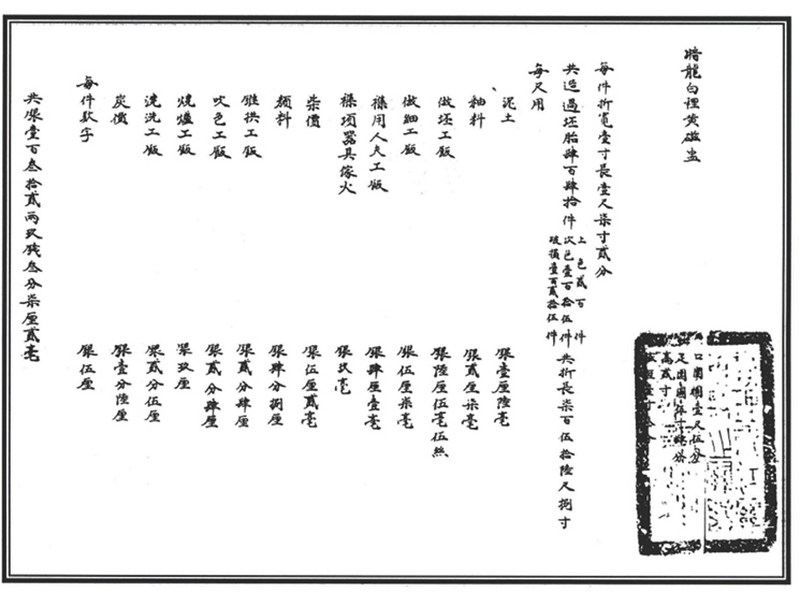 暗龍白裡黃磁盅
口面圓壹尺伍分
足圓圓伍寸肆分
高貳寸
每件折寬壹寸長壹尺柒寸貳分
共造過坯胎肆百肆拾件
上色貳百件
次色壹百拾伍件
破損壹百貳拾伍件
共折長柒百伍拾陸尺捌寸
每尺用
泥土 銀壹厘陸毫
釉料 銀貳厘柒毫
做坯工飯 銀陸厘伍毫伍絲
做細工飯 銀伍厘柒毫
襍用人夫工飯 銀肆厘壹毫
襍項器具傢火 銀玖毫
柴價 銀伍厘貳毫
顏料 銀肆分捌厘
雕拱工飯 銀貳分肆厘
吹色工飯 銀貳分肆厘
燒爐工飯 銀玖厘
澆洗工飯 銀貳分伍厘
炭價 銀壹分陸厘
每件款字 銀伍厘
共銀壹百叁拾貳兩玖錢叁分柒厘貳毫